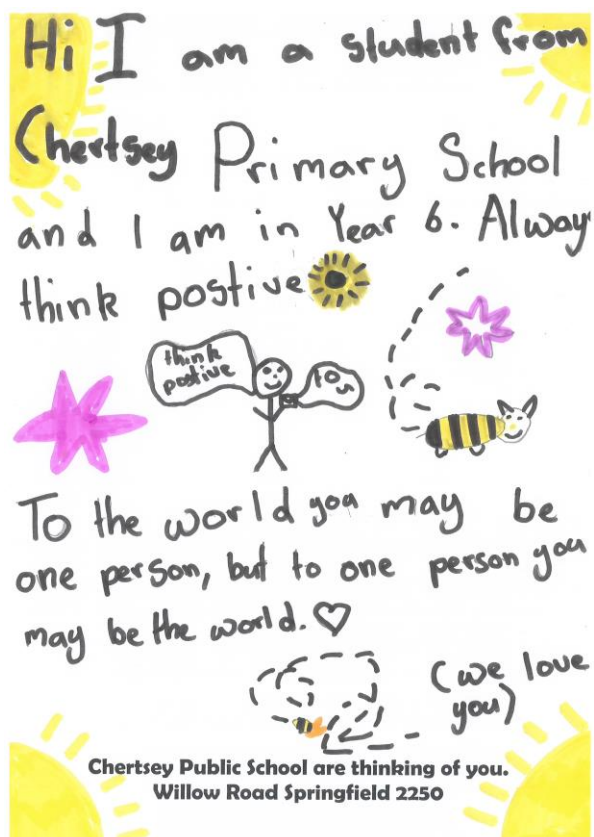 Hi I am a student from
Chertsey Primary School
and I am in Year 6. Alway
think postive
think
postive
To the world you may be
one person, but to one person you
may be the world. ♡
(we love
you)
Chertsey Public School are thinking of you.
Willow Road Springfield 2250